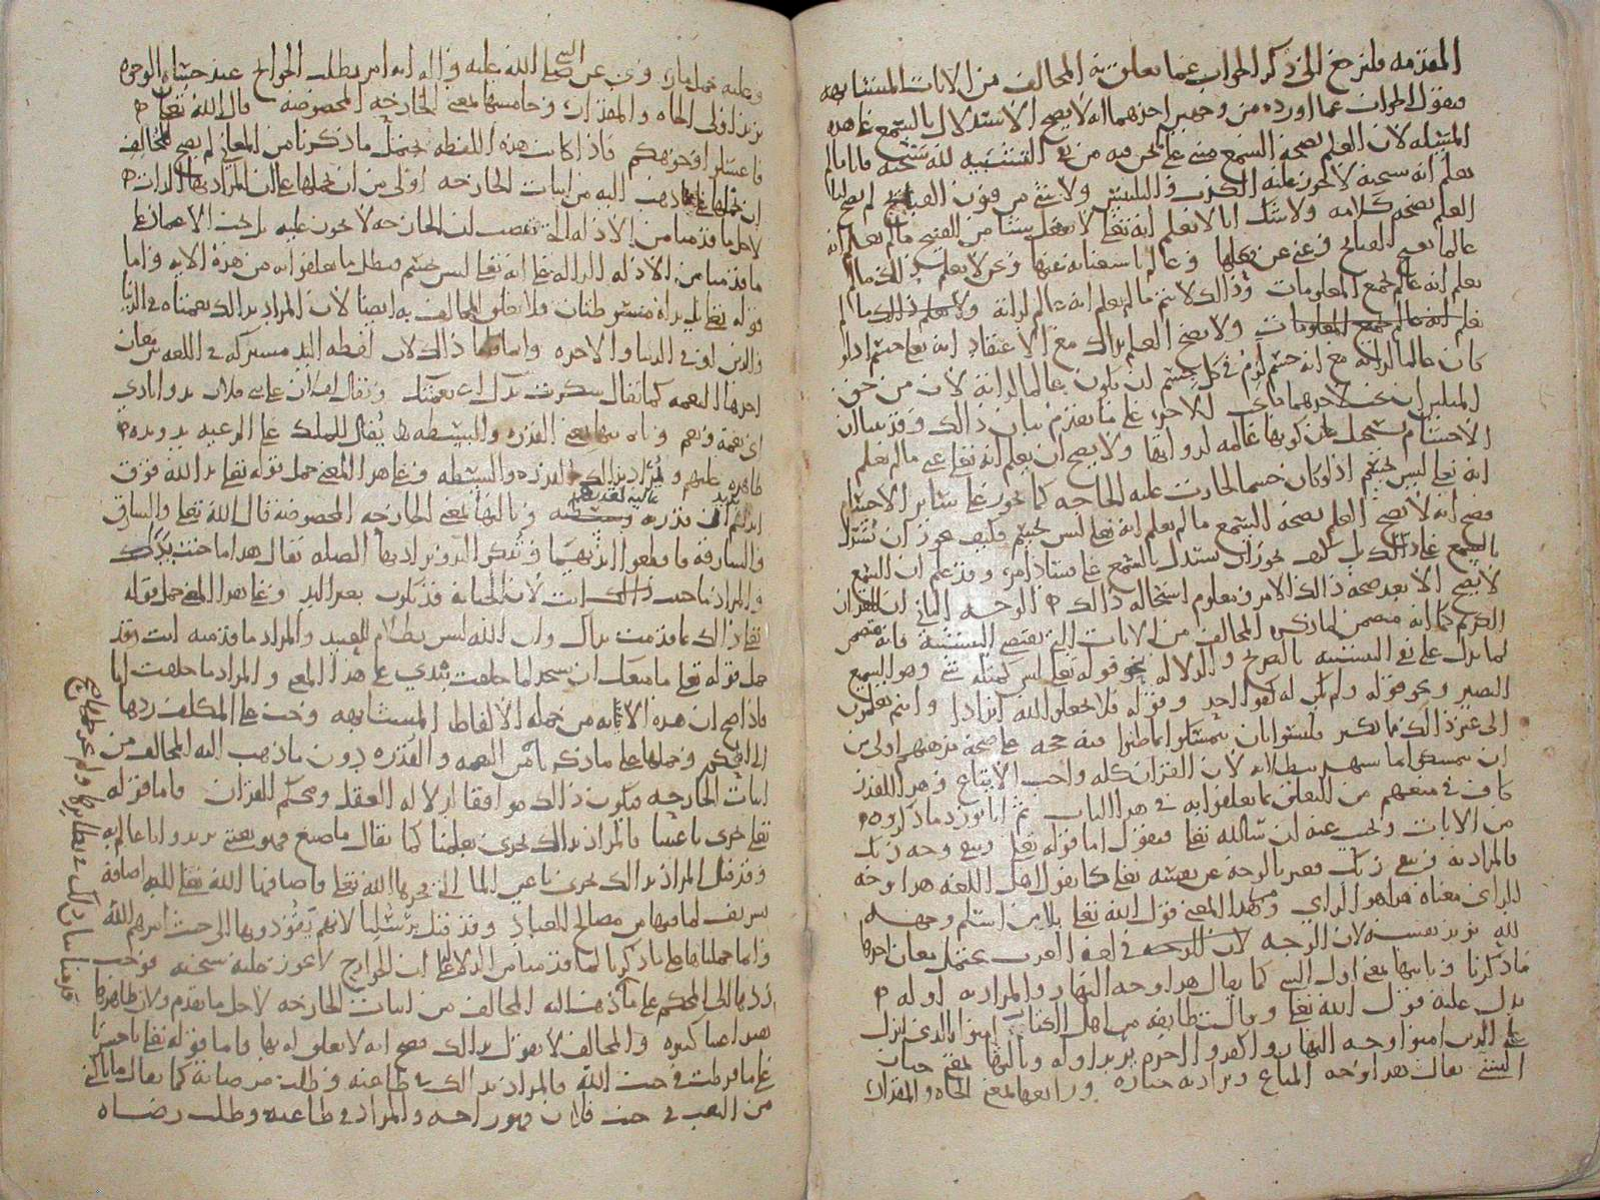 المقدمه فلنرجع الى ذكر الجواب عما تعلق به المخالف من الايات المتشابهه
فنقول الجواب عما اورده من وجهين احدهما انه لا يصح الاستدلال بالسمع على هذه
المسئله لان العلم بصحه السمع مبنى على من نفى التشبيه لله سبحنه فانا مالم
نعلم انه سبحنه لا يجوز عليه الكذب والتلبيس ولا شى من فنون القبايح لم يصح لنا
العلم بصحه كلامه ولا شك انا لا نعلم انه تعالى لا يفعل شيئا من القبيح مالم نعلم انه
عالما بقبح القبايح وغنى عن فعلها وعالم باستغنايه عنها ونحن لا نعلم ذلك مالم
نعلم انه عالم بجميع المعلومات وذلك لا يتم مالم نعلم انه عالم لذاته
ولا يصح العلم بذلك مع الاعتقاد انه تعالى جسم اذ لو
كان عالما لذاته مع انه جسم لزم فى كل جسم ان يكون عالما لذاته لان من حق
المثلين ان يجب لاحدهما ما يجب للاخر على ما تقدم بيان ذلك وقد بينا ان
الاجسام يستحيل كونها عالمه لذواتها ولا يصح ان يعلم انه تعالى غنى مالم نعلم
انه تعالى ليس بجسم اذ لو كان جسما لجازت عليه الحاجه كما تجوز على سائر الاجسام
فصح انه لا يصح العلم بصحه السمع مالم نعلم انه تعالى ليس بجسم فكيف يجوز ان يستدل
بالسمع على ذلك بل كيف يجوز ان يستدل بالسمع على فساد امر وقد علم ان السمع
لا يصح الا بعد صحه ذلك الامر ومعلوم استحاله ذلك الوجه الثاني ان القران
الكريم كما انه متضمن لما ذكره المخالف من الايات التى تقتضى التشبيه فانه متضمن
لما يدل على نفى التشبيه بالصريح والدلاله نحو قوله تعالى ليس كمثله شى وهو السميع
البصير ونحو قوله ولم يكن له كفوا احد وقوله فلا تجعلوا لله اندادا وانتم تعلمون
الى غير ذلك مما يكثر فليسوا بان يتمسكوا بما ظنوا فيه حجه على صحه مذهبهم اولى من
ان يتمسك بما يشهد ببطلانه لان القران كله واجب الاتباع وهذا القدر
كاف فى منعهم من التعلق بما تعلقوا به فى هذا الباب ثم انا نورد ما ذكروه
من الايات ونجيب عنه ان شا الله تعالى فنقول اما قوله تعالى ويبقى وجه ربك
فالمراد به ويبقى ربك فعبر بالوجه عن نفسه تعالى كما يقول اهل اللغه هذا وجه
الراى معناه هذا هو الراي وعلى هذا المعنى قول الله تعالى بلا من اسلم وجهه
لله يريد نفسه لان الوجه فى لغه العرب يحتمل معان احدها
ما ذكرنا وثانيها بمعنى اول الشى كما يقال هذا وجه النهار والمراد به اوله
يدل عليه قول الله تعالى وقالت طائفه من اهل الكتاب امنوا بالذى انزل
على الذين امنوا وجه النهار واكفروا اخره يريد اوله وثالثها بمعنى
الشى يقال هذا وجه المتاع ويراد به خياره ورابعها بمعنى الجاه والمقدار
وعليه حمل ما روى عن النبى صلى الله عليه واله انه امر بطلب الحوائج عند حسان الوجوه
يريد اولى الجاه والمقدار وخامسها بمعنى الجارحه المخصوصه قال الله تعالى
فاغسلوا وجوهكم فاذا كانت هذه اللفظه تحتمل ما ذكرنا من المعانى لم يصح للمخالف
ان يحملها على ما ذهب اليه من اثبات الجارحه اولى من ان نحملها على ان المراد بها الذات
لاجل ما قدمنا من الادله التى تقتضى ان الجارحه لا تجوز عليه
ما قدمنا من الادله الداله على انه تعالى ليس بجسم فبطل ما تعلقوا به من هذه الايه واما
قوله تعالى بل يداه مبسوطتان فلا تعلق للمخالف به ايضا لان المراد بذلك نعمتاه فى الدنيا
والدين او فى الدنيا والاخره وانما قلنا ذلك لان لفظه اليد مشتركه فى اللغه بين معان
احدها النعمه كما يقال شكرت يدك اى نعمتك ويقال لفلان على فلان يد وايادي
اى نعمه ونعم وثانيها بمعنى القدره والبسطه كما يقال للملك على الرعيه يد ويده
ظاهره عليهم ويراد بذلك القدره والبسطه وعلى هذا المعنى حمل قوله تعالى يد الله فوق
ايديهم يريد ان قدرته عاليه لقدرتهم وثالثها بمعنى الجارحه المخصوصه قال الله تعالى والسارق
والسارقه فاقطعوا ايديهما وتذكر اليد ويراد بها الصله يقال هذا ما جنت يداك
والمراد ما جنيت انت لان الجنايه قد تكون بغير اليد وعلى هذا المعنى حمل قوله
تعالى ذلك بما قدمت يداك وان الله ليس بظلام للعبيد والمراد ما قدمته انت وقد
حمل قوله تعالى ما منعك ان تسجد لما خلقت بيدي على هذا المعنى والمراد ما خلقت انا
فاذا صح ان هذه الايه من جمله الالفاظ المتشابهه وجب على المكلف ردها
الى المحكم وحملها على ما ذكرنا من النعمه والقدره دون ما ذهب اليه المخالف من
اثبات الجارحه فيكون ذلك موافقا لدلاله العقل ومحكم القران واما قوله
تعالى تجرى باعيننا فالمراد بذلك تجرى بعلمنا كما يقال ما صنع فهو بعينى يريد وانا عالم به
وقد قيل المراد بذلك تجرى باعين الما التى فجرها الله تعالى واضافها الله تعالى اليه اضافة
تشريف لما فيها من مصالح العباد وقد قيل برسلنا لانهم يقودونها الى حيث امرهم الله
وانما حملناها على ما ذكرنا لما قدمنا من الدلاله على ان الجوارح لا تجوز عليه سبحنه فوجب
ردها الى المحكم على ما ذهب اليه المخالف من اثبات الجارحه لاجل ما تقدم ولان ظاهرها
يفيد اعينا كثيره والمخالف لا يقول بذلك فصح انه لا تعلق له بها واما قوله تعالى يا حسرتا
على ما فرطت فى جنب الله فالمراد بذلك فى طاعته وطلب مرضاته كما يقال
من التعب فى جنب فلان فهو راحه والمراد فى طاعته وطلب رضاه